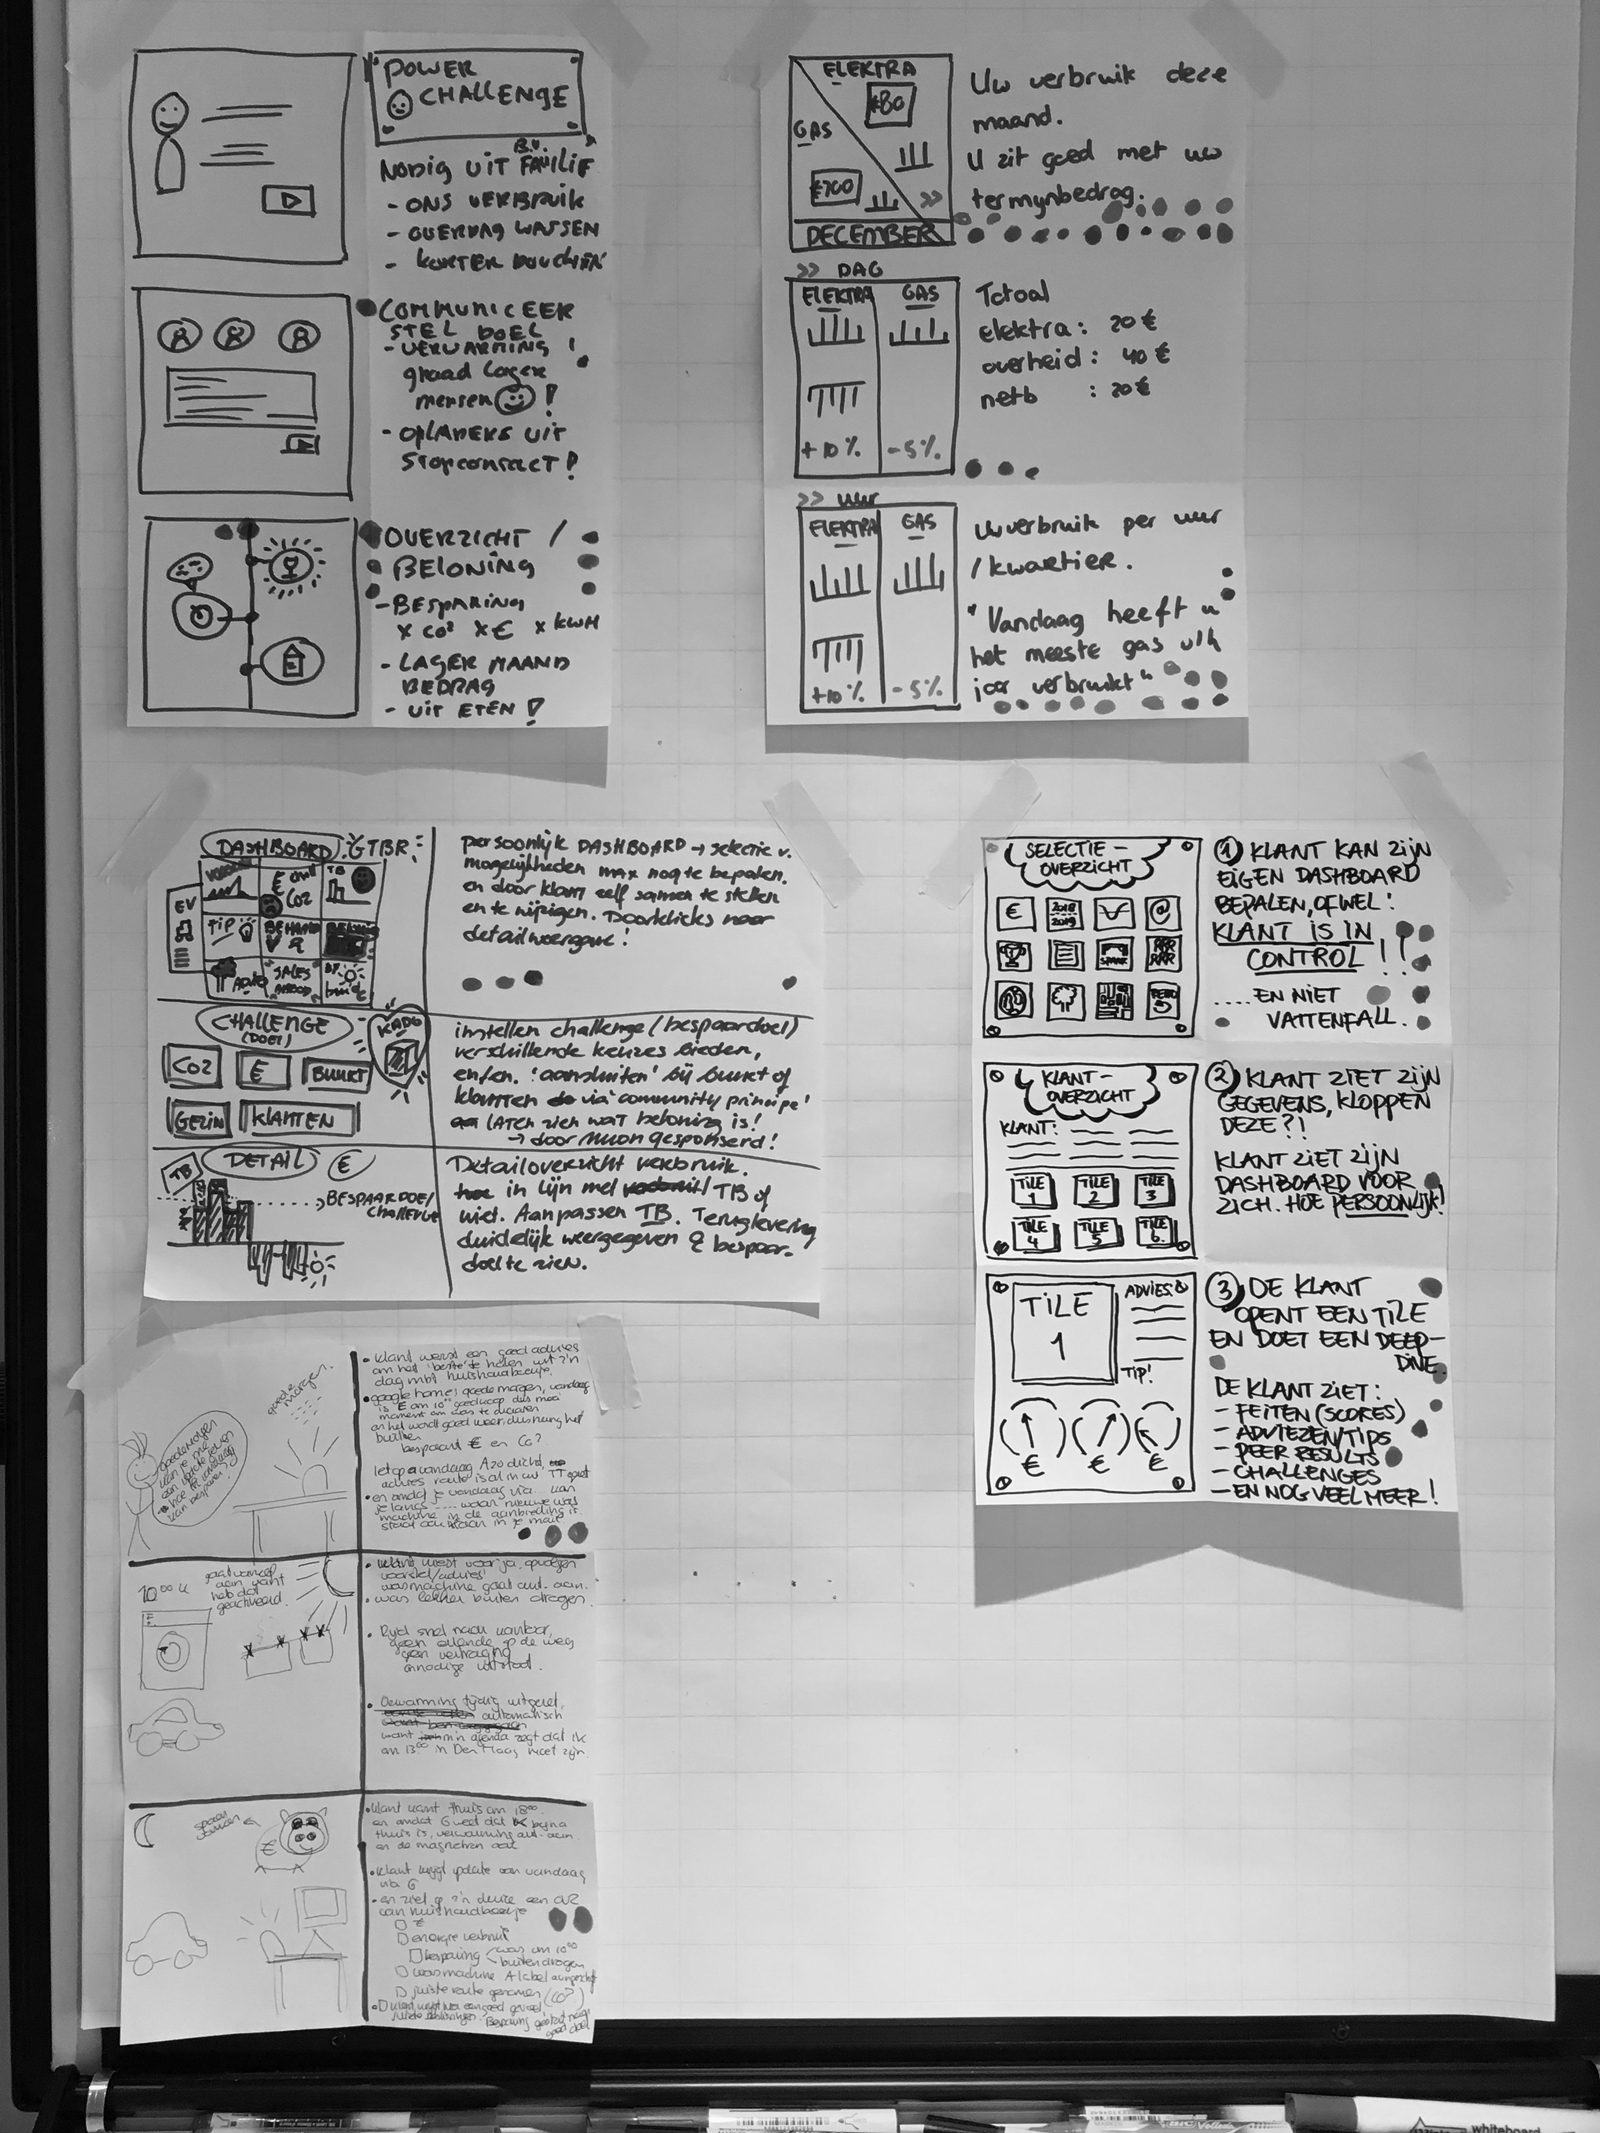 POWER
CHALLENGE
B.V.
NODIG UIT FAMILIE
- ONS VERBRUIK
- OVERDAG WASSEN
- KORTER DOUCHEN
COMMUNICEER
STEL DOEL
- VERWARMING 1
graad lager
mensen !
- OPLADERS UIT
STOPCONTACT!
OVERZICHT /
BELONING
- BESPARING
x CO² x € x KWH
- LAGER MAAND
BEDRAG
- UIT ETEN!
ELEKTRA
€80
GAS
€100
>>
DECEMBER
Uw verbruik deze
maand.
U zit goed met uw
termijnbedrag.
>> DAG
ELEKTRA GAS
+10% -5%
Totaal
elektra: 20€
overheid: 40€
netb : 20€
>> UUR
ELEKTRA GAS
+10% -5%
Uw verbruik per uur
/ kwartier.
"Vandaag heeft u
het meeste gas v/h
jaar verbruikt"
DASHBOARD GTBR:
EV
€
CO2
TB
TIP
SALES
persoonlijk DASHBOARD → selectie v.
mogelijkheden max nog te bepalen.
en door klant zelf samen te stellen
en te wijzigen. Doorklicks naar
detailweergave!
CHALLENGE
(DOEL)
KADO
CO2 € BUURT
GEZIN KLANTEN
instellen challenge (bespaardoel)
verschillende keuzes bieden,
en/en. 'aansluiten' bij buurt of
klanten via 'community principe'
LATEN zien wat beloning is!
→ door Nuon gesponserd!
TB DETAIL €
BESPAARDOEL/
challenge
Detailoverzicht verbruik.
in lijn met TB of
niet. Aanpassen TB. Teruglevering
duidelijk weergegeven & bespaar-
doel te zien.
SELECTIE-
OVERZICHT
€ 2018 2019 @
1 KLANT KAN ZIJN
EIGEN DASHBOARD
BEPALEN, OFWEL:
KLANT IS IN
CONTROL!!
....EN NIET
VATTENFALL.
KLANT-
OVERZICHT
KLANT:
TILE 1 TILE 2 TILE 3
TILE 4 TILE 5 TILE 6
2 KLANT ZIET ZIJN
GEGEVENS, KLOPPEN
DEZE?!
KLANT ZIET ZIJN
DASHBOARD VOOR
ZICH. HOE PERSOONLIJK!
TILE
1
ADVIES:
TIP!
€ € €
3 DE KLANT
OPENT EEN TILE
EN DOET EEN DEEP-
DIVE.
DE KLANT ZIET:
- FEITEN (SCORES)
- ADVIEZEN/TIPS
- PEER RESULTS
- CHALLENGES
- EN NOG VEEL MEER!
goede
morgen.
• klant wenst een goed advies
om het 'beste' te halen uit z'n
dag mbt huishoudboekje.
• google home: goede morgen, vandaag
is E om 10⁰⁰ goedkoop dus mooi
moment om was te draaien
en het wordt goed weer, dus hang het
buiten
bespaart € en Co²
let op vandaag A20 dicht,
advies route is al in uw TT gezet
• en omdat je vandaag via
je langs .... waar nieuwe was
machine in de aanbieding is
10⁰⁰ u
geactiveerd.
wasmachine gaat aut. aan.
• was lekker buiten drogen.
• Rijd snel naar kantoor,
geen ellende op de weg
geen vertraging
onnodige uitstoot.
• Verwarming tijdig uitgezet,
automatisch
want m'n agenda zegt dat ik
om 13⁰⁰ in Den Haag moet zijn.
• klant komt thuis om 18⁰⁰
en omdat G weet dat bijna
thuis is, verwarming aut. aan
• klant krijgt update van vandaag
via G
• en ziet op z'n device een
van huishoudboekje
€
energie verbruik
besparing was om 10⁰⁰
buiten drogen
wasmachine A label
juiste route genomen (Co²)
whiteboard